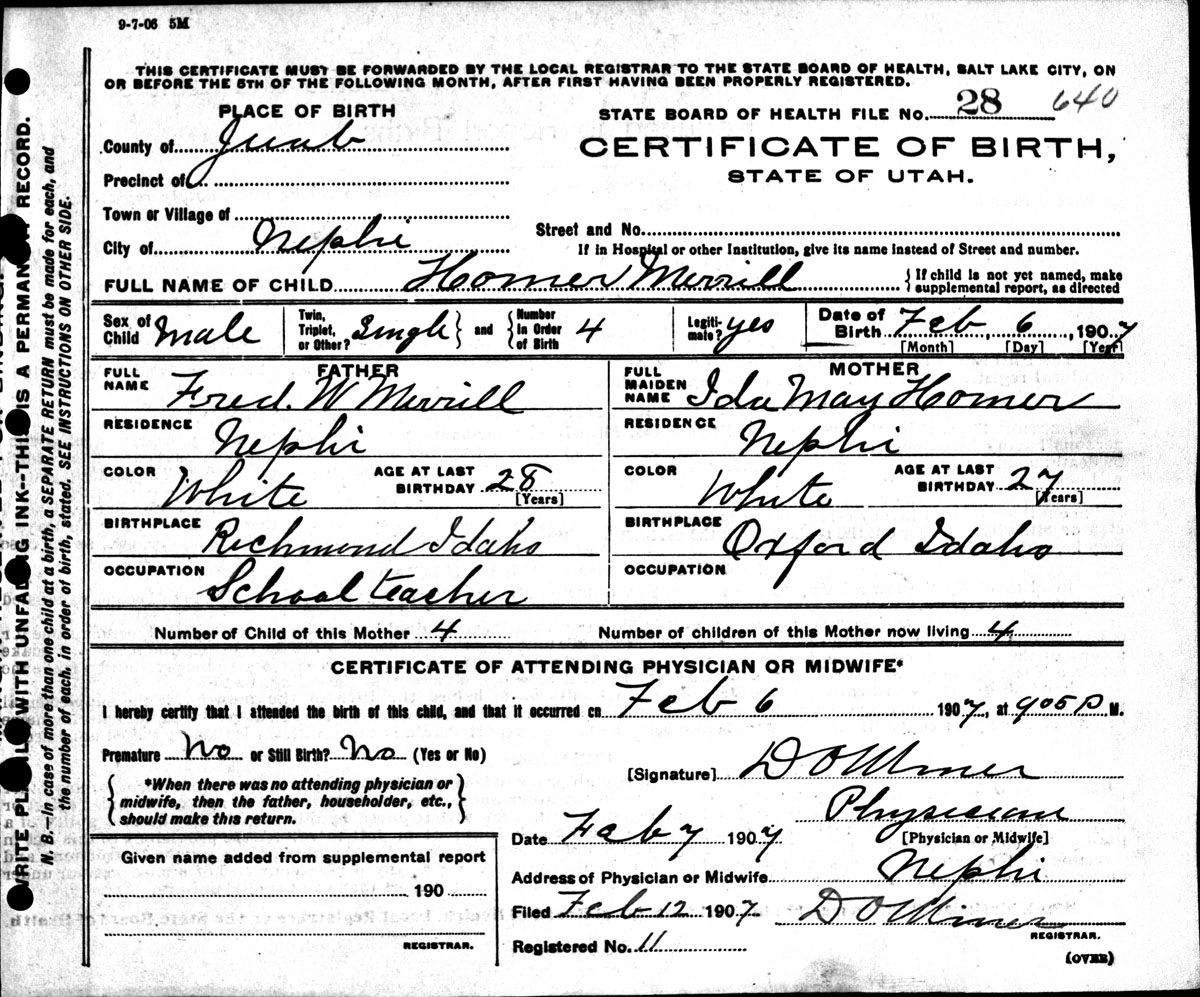 9-7-06 5M
THIS CERTIFICATE MUST BE FORWARDED BY THE LOCAL REGISTRAR TO THE STATE BOARD OF HEALTH, SALT LAKE CITY, ON
OR BEFORE THE 5TH OF THE FOLLOWING MONTH, AFTER FIRST HAVING BEEN PROPERLY REGISTERED.
PLACE OF BIRTH
STATE BOARD OF HEALTH FILE NO. 28 640
County of Juab
CERTIFICATE OF BIRTH,
STATE OF UTAH.
Precinct of
Town or Village of
Street and No.
City of Nephi
If in Hospital or other Institution, give its name instead of Street and number.
FULL NAME OF CHILD Homer Merrill
{ If child is not yet named, make
supplemental report, as directed
Sex of Child Male
Twin, Triplet, or Other? Single } and { Number In Order of Birth 4
Legitimate? yes
Date of Birth Feb 6, 1907
[Month] [Day] [Year]
FATHER
FULL NAME Fred. W Merrill
RESIDENCE Nephi
COLOR White AGE AT LAST BIRTHDAY 28 [Years]
BIRTHPLACE Richmond Idaho
OCCUPATION School teacher
MOTHER
FULL MAIDEN NAME Ida May Homer
RESIDENCE Nephi
COLOR White AGE AT LAST BIRTHDAY 27 [Years]
BIRTHPLACE Oxford Idaho
OCCUPATION
Number of Child of this Mother 4 Number of children of this Mother now living 4
CERTIFICATE OF ATTENDING PHYSICIAN OR MIDWIFE*
I hereby certify that I attended the birth of this child, and that it occurred on Feb 6 1907, at 905 P M.
Premature No or Still Birth? No (Yes or No)
{ *When there was no attending physician or
midwife, then the father, householder, etc.,
should make this return. }
[Signature]
Physician
[Physician or Midwife]
Date Feb 7 1907
Address of Physician or Midwife Nephi
Filed Feb 12 1907
REGISTRAR.
Registered No. 11
(OVER)
Given name added from supplemental report
190
REGISTRAR.
WITH UNFADING INK--THIS IS A PERMANENT RECORD.
N. B.--In case of more than one child at a birth, a SEPARATE RETURN must be made for each, and
the number of each, in order of birth, stated. SEE INSTRUCTIONS ON OTHER SIDE.